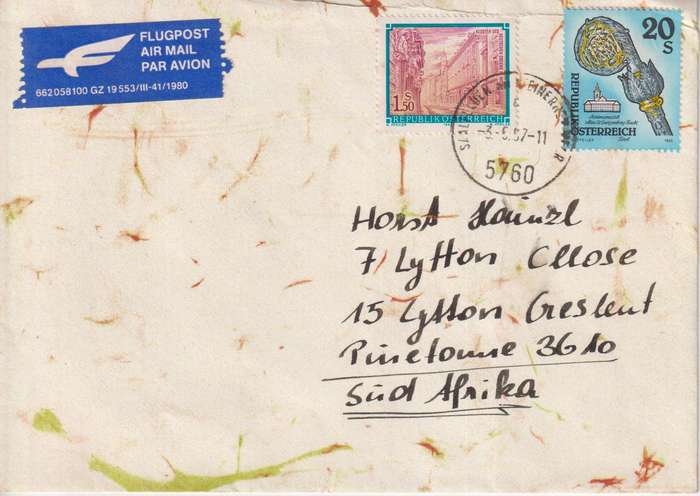 FLUGPOST
AIR MAIL
PAR AVION
662 058 100 GZ 19 553/III-41/1980
1.50 S
REPUBLIK ÖSTERREICH
20
S
REPUBLIK
ÖSTERREICH
-3.-5.97-11
5760
Horst Hainzl
7 Lytton Cllose
15 Lytton Creslent
Pinetowne 3610
Süd Afrika